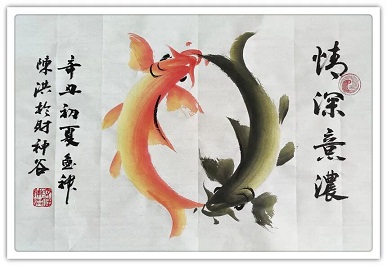 情深意濃
辛丑初夏画神
陳洪於財神谷